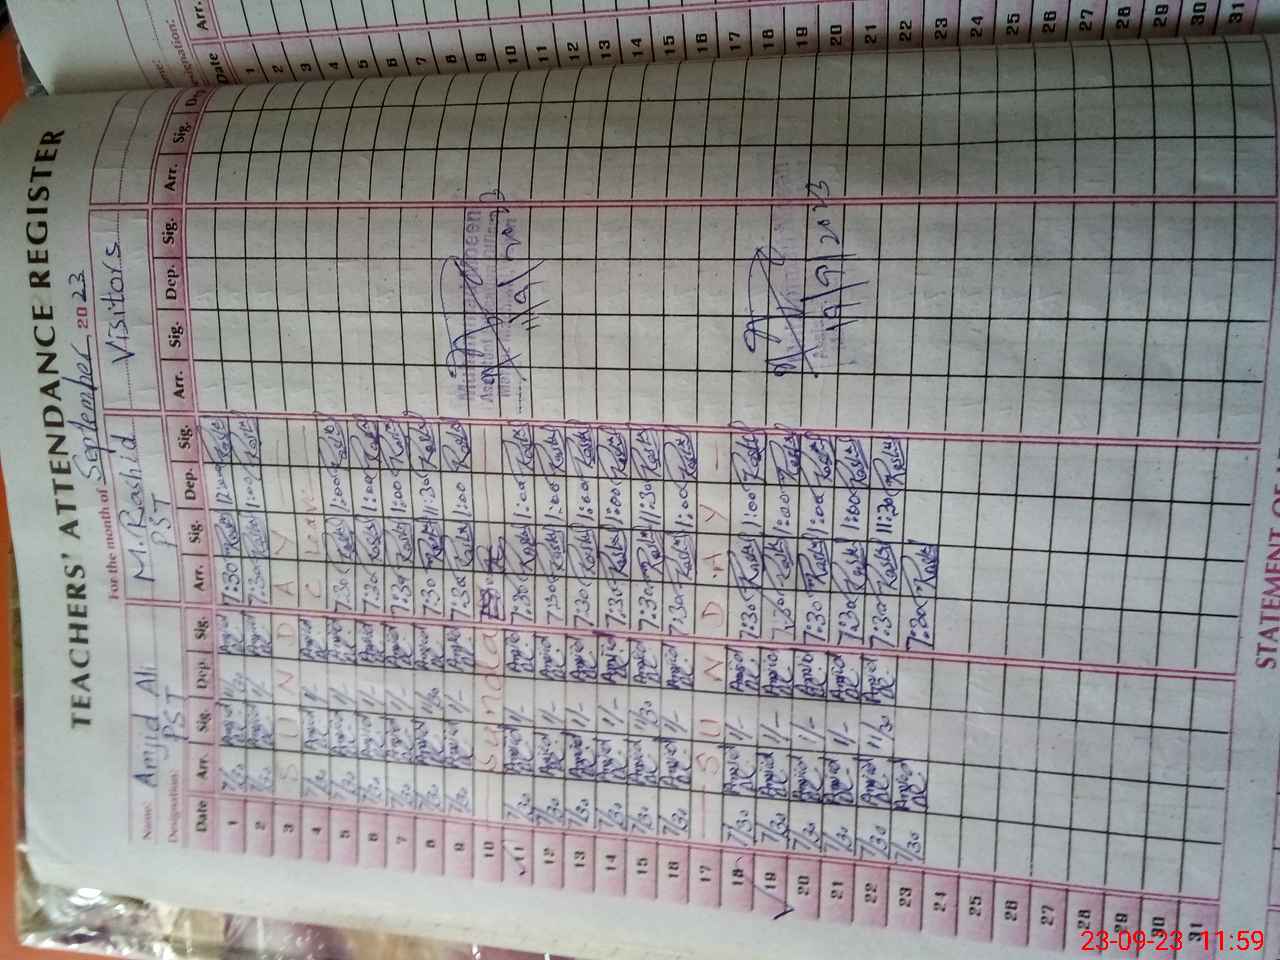 TEACHERS' ATTENDANCE REGISTER
For the month of September 2023
Name: Amjid Ali M. Rashid Visitors
Designation: PST PST
Date Arr. Sig. Dep. Sig. Arr. Sig. Dep. Sig. Arr. Sig. Dep. Sig. Arr. Sig.
1 7/30 Amjid Amjid 7:30 Rashid 12:00 Rashid
2 7/30 Amjid 1/- Amjid 7:30 Rashid 1:00 Rashid
3 S U N D A Y
4 7/30 Amjid 1/- Amjid C Leave
5 7/30 Amjid 1/- Amjid 7:30 Rashid 1:00 Rashid
6 7/30 Amjid 1/- Amjid 7:30 Rashid 1:00 Rashid
7 7/30 Amjid 1/- Amjid 7:30 Rashid 1:00 Rashid
8 7/30 Amjid 11/30 Amjid 7:30 Rashid 11:30 Rashid
9 7/30 Amjid 1/- Amjid 7:30 Rashid 1:00 Rashid
10 Sunda
11 7/30 Amjid 1/- Amjid 7:30 Rashid 1:00 Rashid 11/9/2023
12 7/30 Amjid 1/- Amjid 7:30 Rashid 1:00 Rashid
13 7/30 Amjid 1/- Amjid 7:30 Rashid 1:00 Rashid
14 7/30 Amjid 1/- Amjid 7:30 Rashid 1:00 Rashid
15 7/30 Amjid 11/30 Amjid 7:30 Rashid 11:30 Rashid
16 7/30 Amjid 1/- Amjid 7:30 Rashid 1:00 Rashid
17 S U N D A Y
18 7/30 Amjid 1/- Amjid 7:30 Rashid 1:00 Rashid
19 7/30 Amjid 1/- Amjid 7:30 Rashid 1:00 Rashid
20 7/30 Amjid 1/- Amjid 7:30 Rashid 1:00 Rashid 19/9/2023
21 7/30 Amjid 1/- Amjid 7:30 Rashid 1:00 Rashid
22 7/30 Amjid 11/30 Amjid 7:30 Rashid 11:30 Rashid
23 7/30 Amjid 7:30 Rashid
24
25
26
27
28
29
30
31
STATEMENT OF
Date Arr.
1
2
3
4
5
6
7
8
9
10
11
12
13
14
15
16
17
18
19
20
21
22
23
24
25
26
27
28
29
30
31
23-09-23 11:59